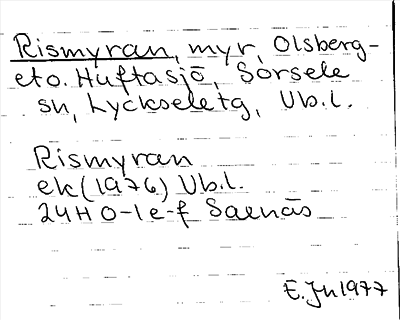 Rismyran, myr, Olsberg-
et o. Huftasjö, Sorsele
sn, Lycksele tg, Vb.l.
Rismyran
ek (1976) Vb.l.
24H 0-1 e-f Saenäs
E. Jn 1977